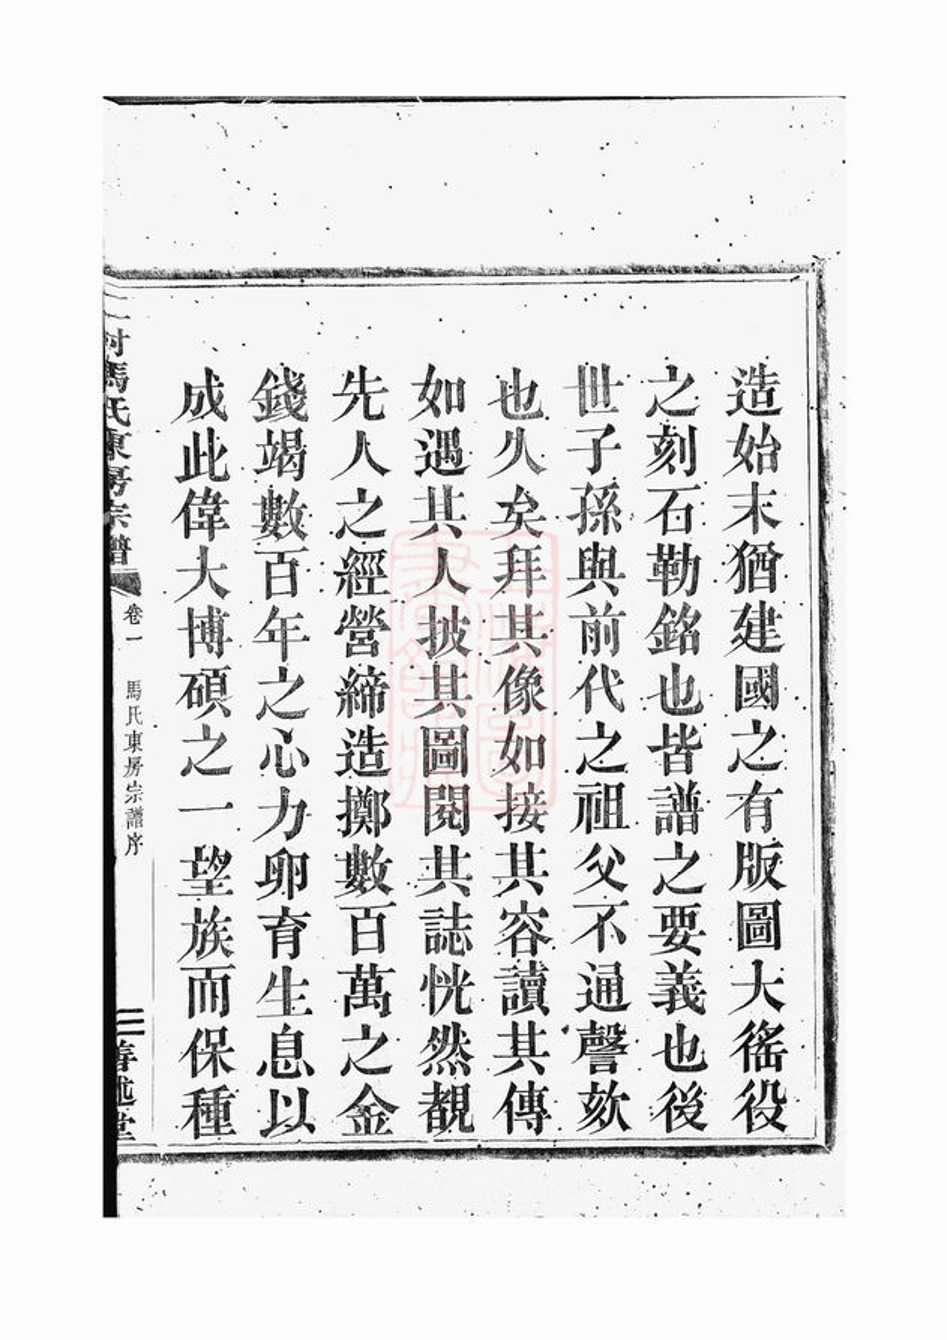 造始末猶建國之有版圖大徭役
之刻石勒銘也皆譜之要義也後
世子孫與前代之祖父不通謦欬
也久矣拜其像如接其容讀其傳
如遇其人披其圖閱其誌恍然覩
先人之經營締造擲數百萬之金
錢竭數百年之心力卵育生息以
成此偉大博碩之一望族而保種
馬氏東房宗譜
卷一
馬氏東房宗譜序
三
善述堂